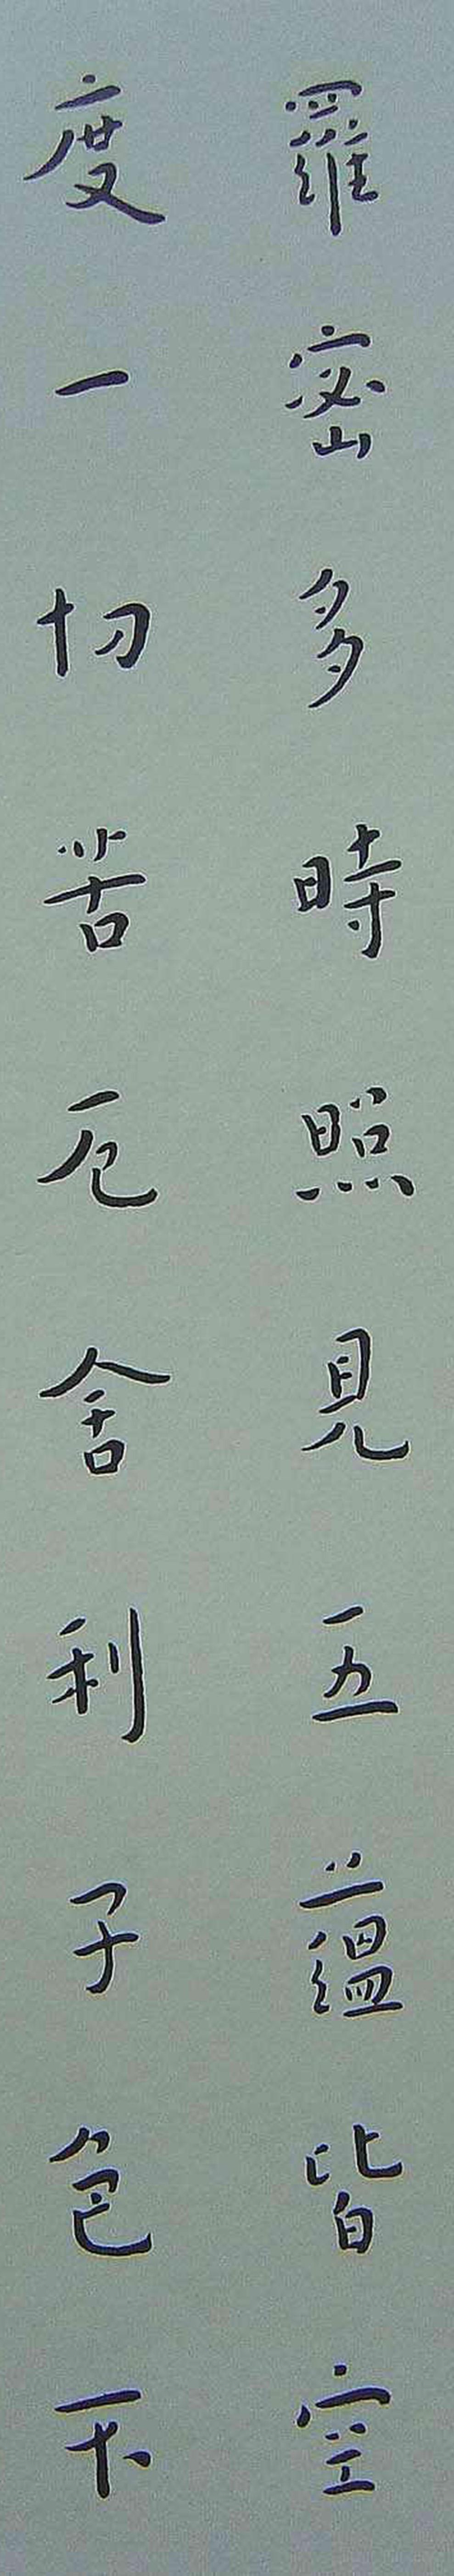 羅密多時照見五蘊皆空
度一切苦厄舍利子色不